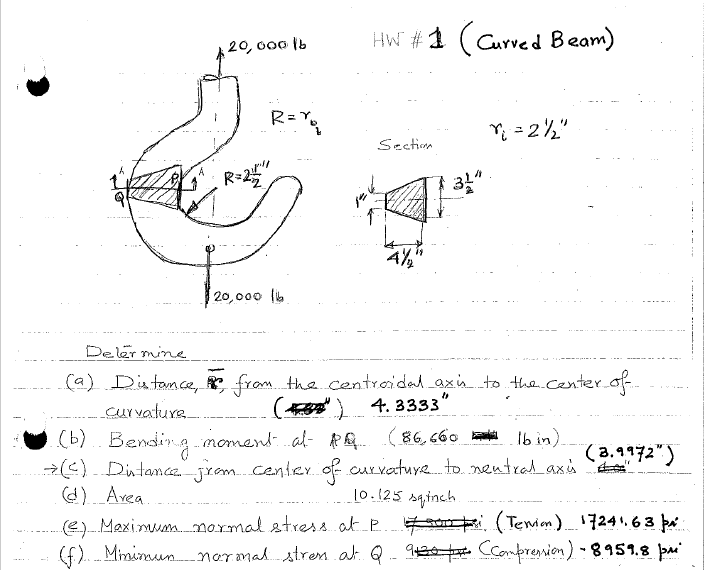 HW # 1 (Curved Beam)
20,000 lb
R = r_i
r_i = 2 1/2"
Section
A A
P
Q
R = 2 1/2"
1"
3 1/2"
4 1/2"
20,000 lb
Determine
(a) Distance, r̄, from the centroidal axis to the center of
curvature ( ") 4.3333"
(b) Bending moment at PQ (86,660 lb in)
→(c) Distance from center of curvature to neutral axis (3.9972")
(d) Area 10.125 sqinch
(e) Maximum normal stress at P (Tension) 17241.63 psi
(f) Minimum normal stress at Q (Compression) -8959.8 psi